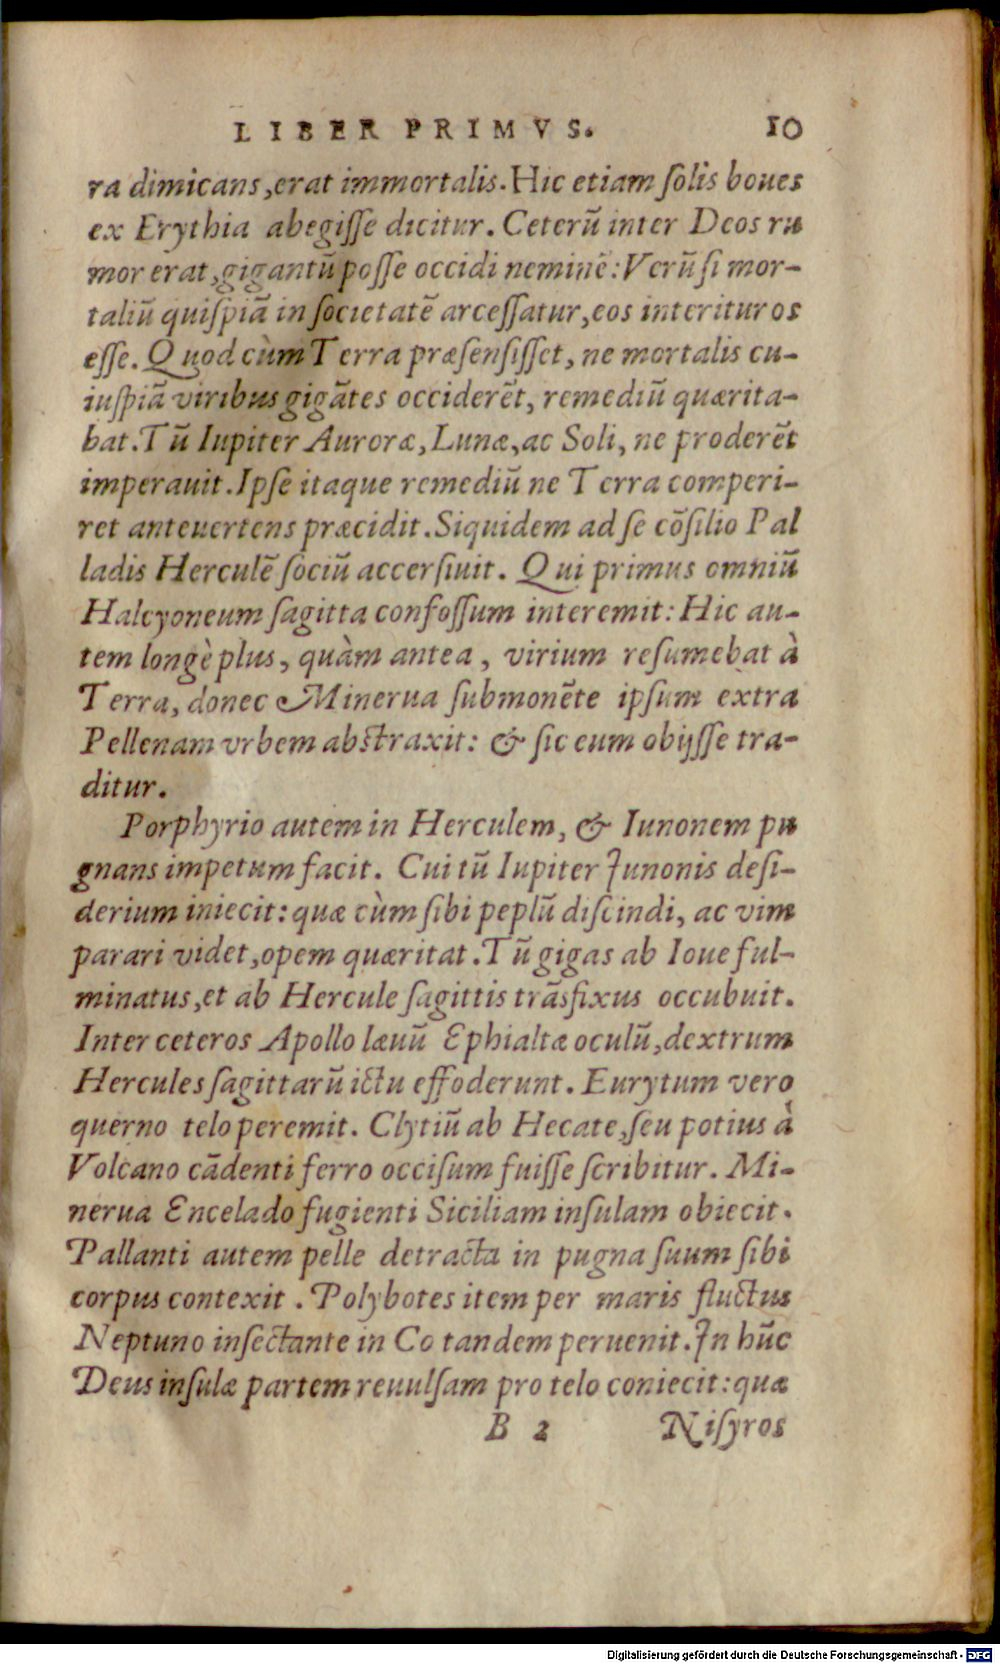 LIBER PRIMVS. 10
ra dimicans, erat immortalis. Hic etiam ſolis boues
ex Erythia abegiſſe dicitur. Ceterũ inter Deos ru
mor erat, gigantũ poſſe occidi neminẽ: Verũ ſi mor-
taliũ quiſpiã in ſocietatẽ arceſſatur, eos interituros
eſſe. Quod cùm Terra præſenſiſſet, ne mortalis cu-
iuſpiã viribus gigãtes occiderẽt, remediũ quærita-
bat. Tũ Iupiter Auroræ, Lunæ, ac Soli, ne proderẽt
imperauit. Ipſe itaque remediũ ne Terra comperi-
ret anteuertens præcidit. Siquidem ad ſe cõſilio Pal
ladis Herculẽ ſociũ accerſiuit. Qui primus omniũ
Halcyoneum ſagitta confoſſum interemit: Hic au-
tem longè plus, quàm antea, virium reſumebat à
Terra, donec Minerua ſubmonẽte ipſum extra
Pellenam vrbem abſtraxit: & ſic eum obijſſe tra-
ditur.
Porphyrio autem in Herculem, & Iunonem pu
gnans impetum facit. Cui tũ Iupiter Junonis deſi-
derium iniecit: quæ cùm ſibi peplũ diſcindi, ac vim
parari videt, opem quæritat. Tũ gigas ab Ioue ful-
minatus, et ab Hercule ſagittis trãsfixus occubuit.
Inter ceteros Apollo læuũ Ephialtæ oculũ, dextrum
Hercules ſagittarũ ictu effoderunt. Eurytum vero
querno telo peremit. Clytiũ ab Hecate, ſeu potius à
Volcano cãdenti ferro occiſum fuiſſe ſcribitur. Mi-
nerua Encelado fugienti Siciliam inſulam obiecit.
Pallanti autem pelle detracta in pugna ſuum ſibi
corpus contexit. Polybotes item per maris fluctus
Neptuno inſectante in Co tandem peruenit. Jn hũc
Deus inſulæ partem reuulſam pro telo coniecit: quæ
B 2 Niſyros
Digitalisierung gefördert durch die Deutsche Forschungsgemeinschaft - DFG